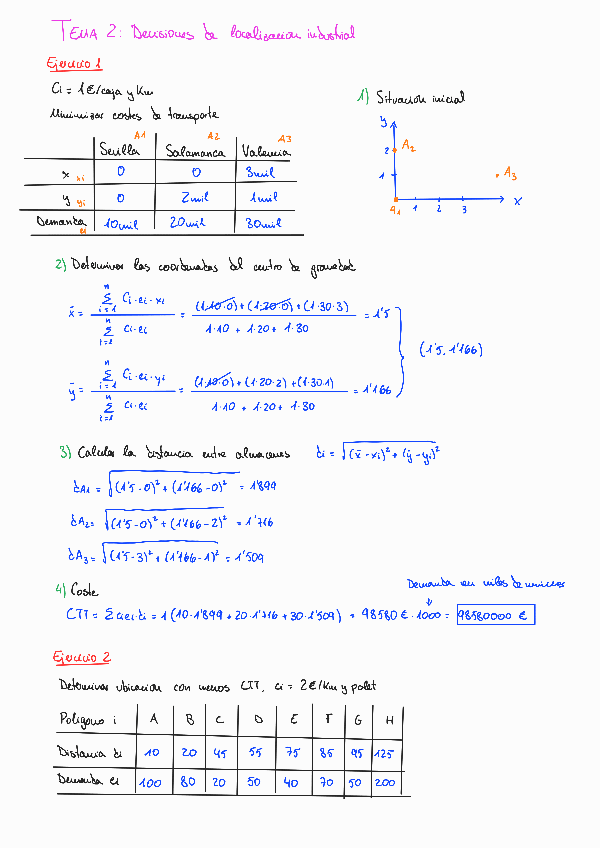 TEMA 2: Decisiones de localización industrial
Ejercicio 1
Ci = 1€/caja y Km
Minimizar costes de transporte
A1 A2 A3
Sevilla Salamanca Valencia
x xi 0 0 3mil
y yi 0 2mil 1mil
Demanda ei 10mil 20mil 30mil
1) Situación inicial
y
2 A2
1 A3
A1 1 2 3 x
2) Determinar las coordenadas del centro de gravedad
x̄ = Σ(i=1, n) Ci·ei·xi / Σ(i=1, n) ci·ei = (1·10·0)+(1·20·0)+(1·30·3) / 1·10 + 1·20 + 1·30 = 1'5
(1'5, 1'166)
ȳ = Σ(i=1, n) Ci·ei·yi / Σ(i=1, n) ci·ei = (1·10·0)+(1·20·2)+(1·30·1) / 1·10 + 1·20 + 1·30 = 1'166
3) Calcular la distancia entre almacenes di = √(x̄ - xi)² + (ȳ - yi)²
dA1 = √(1'5 - 0)² + (1'166 - 0)² = 1'899
dA2 = √(1'5 - 0)² + (1'166 - 2)² = 1'716
dA3 = √(1'5 - 3)² + (1'166 - 1)² = 1'509
4) Coste
Demanda en miles de
CTT = Σ ci·ei·di = 1 (10·1'899 + 20·1'716 + 30·1'509) = 98580 € · 1000 = 98580000 €
Ejercicio 2
Determinar ubicación con menos CTT, ci = 2€/Km y palet
Polígono i A B C D E F G H
Distancia di 10 20 45 55 75 85 95 125
Demanda ei 100 80 20 50 40 70 50 200